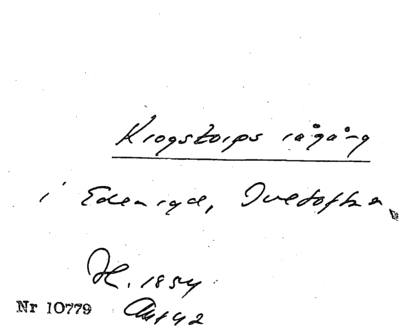 Krogstorps rågång
i Edenryd, Ivetofta
H. 1854
Nr 10779